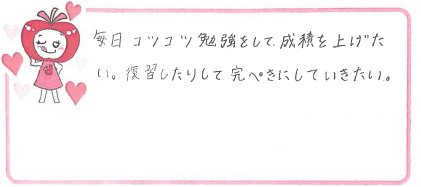 毎日コツコツ勉強をして、成績を上げた
い。復習したりして完ぺきにしていきたい。